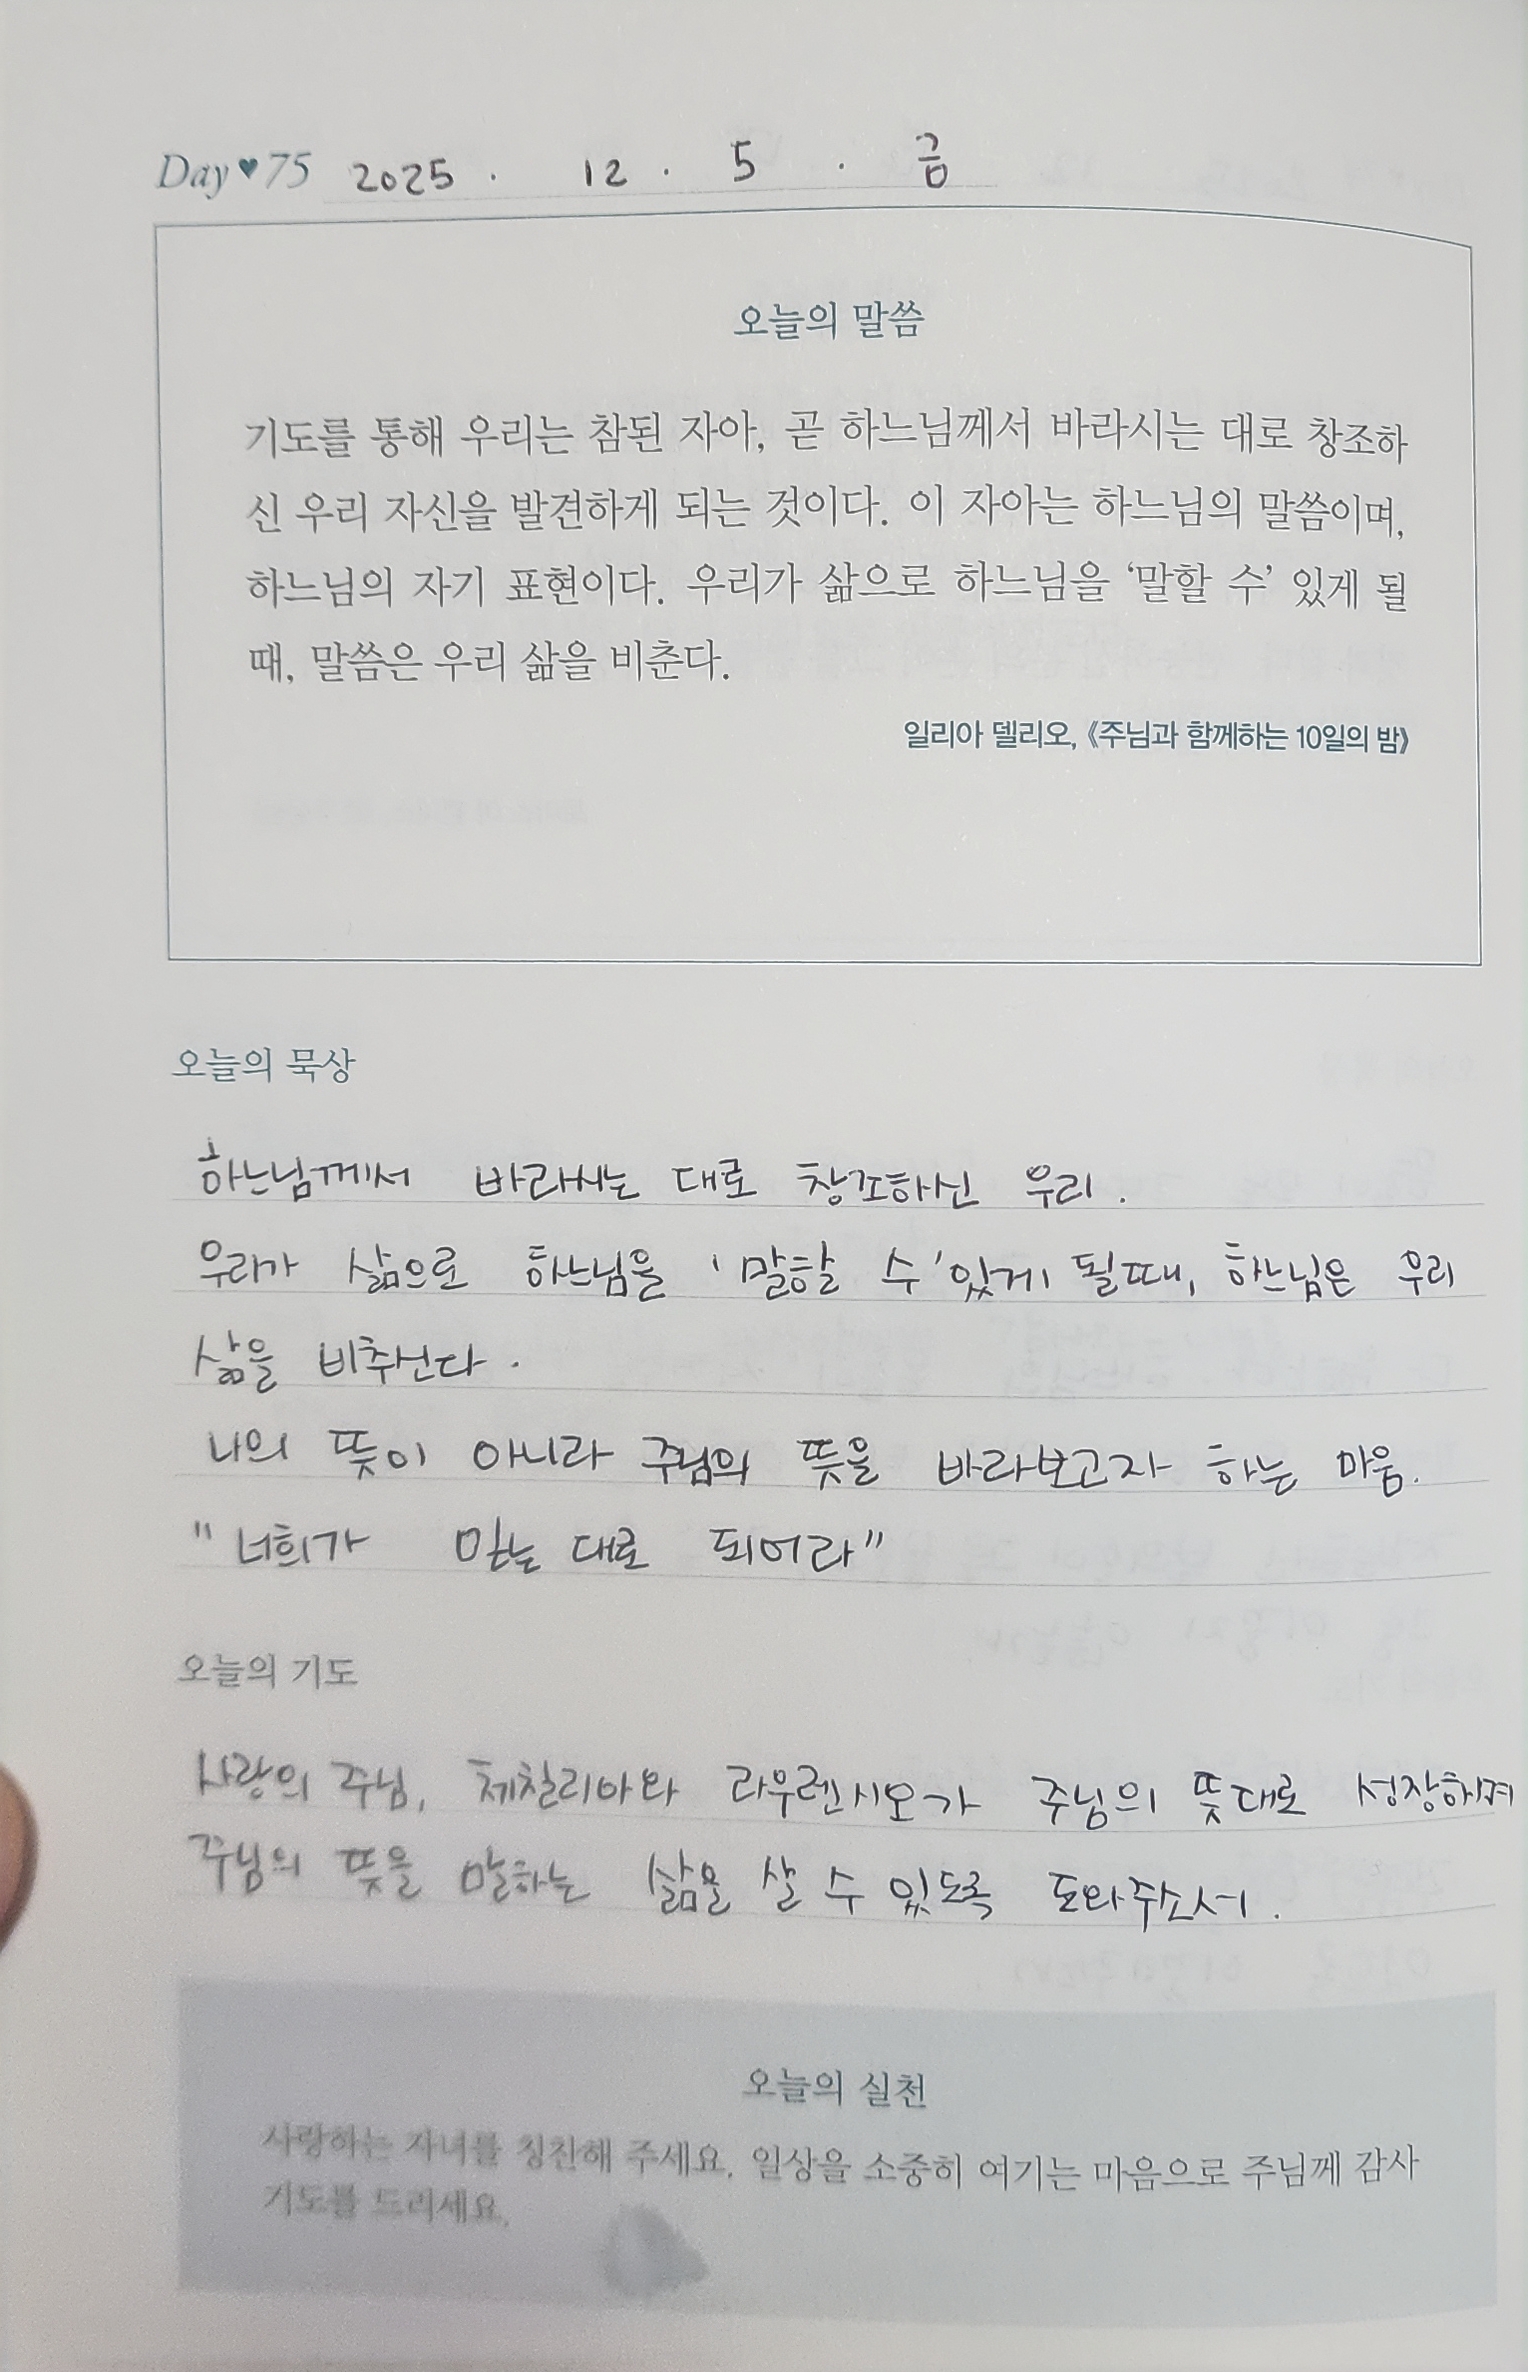 Day♥75 2025 . 12 . 5 . 금
오늘의 말씀
기도를 통해 우리는 참된 자아, 곧 하느님께서 바라시는 대로 창조하
신 우리 자신을 발견하게 되는 것이다. 이 자아는 하느님의 말씀이며,
하느님의 자기 표현이다. 우리가 삶으로 하느님을 ‘말할 수’ 있게 될
때, 말씀은 우리 삶을 비춘다.
일리아 델리오, 《주님과 함께하는 10일의 밤》
오늘의 묵상
하느님께서 바라시는 대로 창조하신 우리.
우리가 삶으로 하느님을 '말할 수' 있게 될때, 하느님은 우리
삶을 비추신다.
나의 뜻이 아니라 주님의 뜻을 바라보고자 하는 마음.
"너희가 믿는 대로 되어라"
오늘의 기도
사랑의 주님, 체칠리아와 라우렌시오가 주님의 뜻대로 성장하여
주님의 뜻을 말하는 삶을 살 수 있도록 도와주소서.
오늘의 실천
사랑하는 자녀를 칭찬해 주세요. 일상을 소중히 여기는 마음으로 주님께 감사
기도를 드리세요.